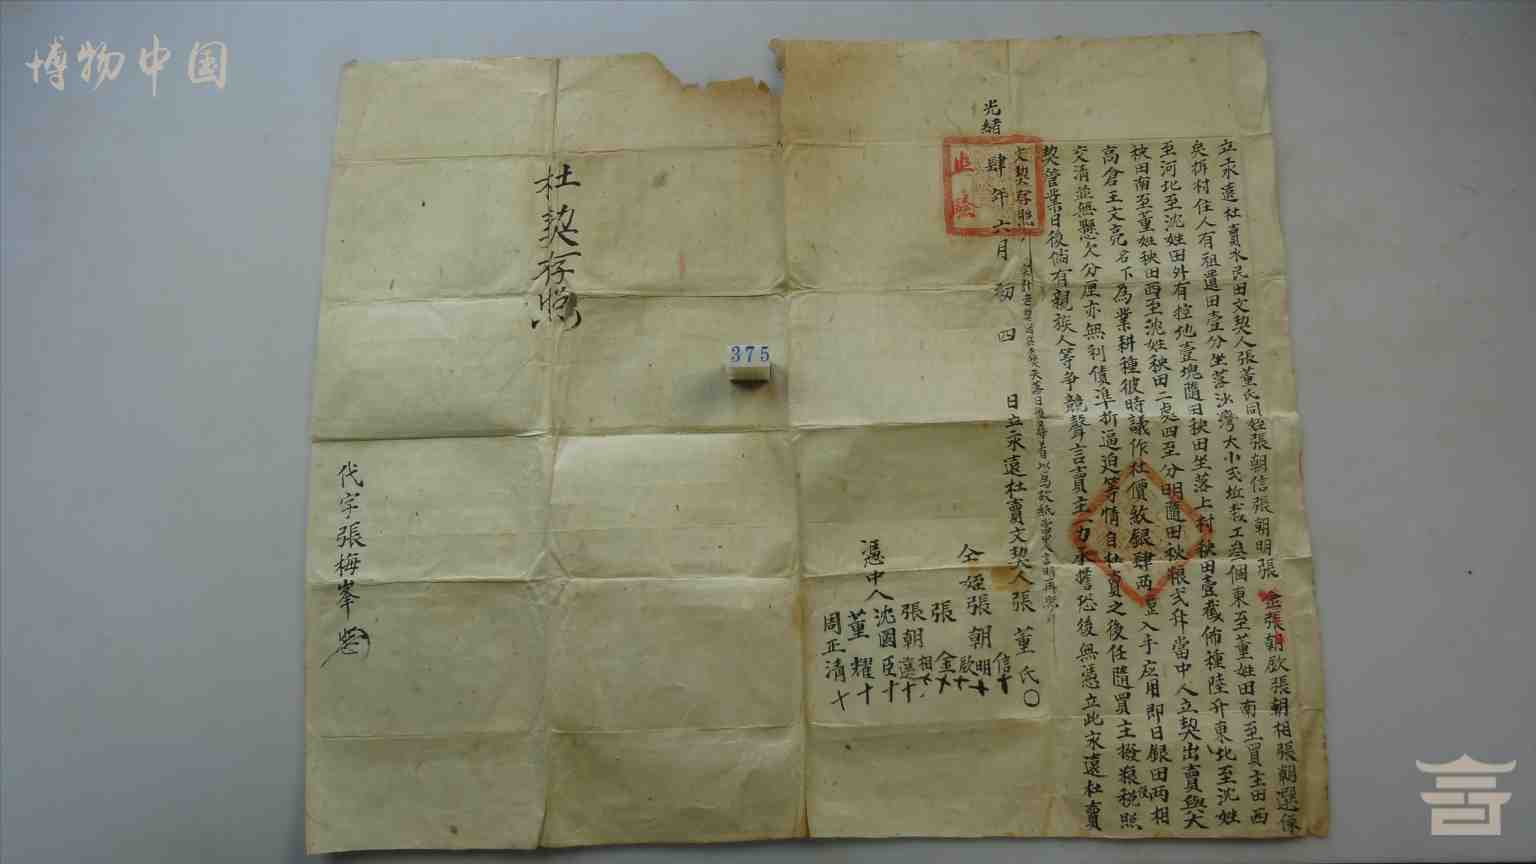 博物中国
立永遠杜賣水民田文契人張董氏同姪張朝信張朝明張金張朝欽張朝相張朝選係
矣楫村住人有祖遺田壹分坐落沙灣大小弍坵栽工叁個東至董姓田南至買主田西
至河北至沈姓田外有控地壹塊隨田秧田坐落上村秧田壹截佈種陸升東北至沈姓
秧田南至董姓秧田西至沈姓秧田二處四至分明隨田秋粮弍升當中人立契出賣與大
高倉王文亮名下為業耕種彼時議作杜價紋銀肆兩整入手应用即日銀田兩相
交清並無懸欠分厘亦無利債準折逼迫等情自杜賣之後任隨買主撥粮稅照
契管業日後倘有親族人等争競聲言賣主一力承擔恐後無憑立此永遠杜賣
文契存照
光緒肆年六月初四日立永遠杜賣文契人張董氏〇
仝姪張朝信十
明十
欽十
張金十
張朝相十
選十
憑中人
沈國臣十
董耀十
周正清十
杜契存照
375
代字張梅峯